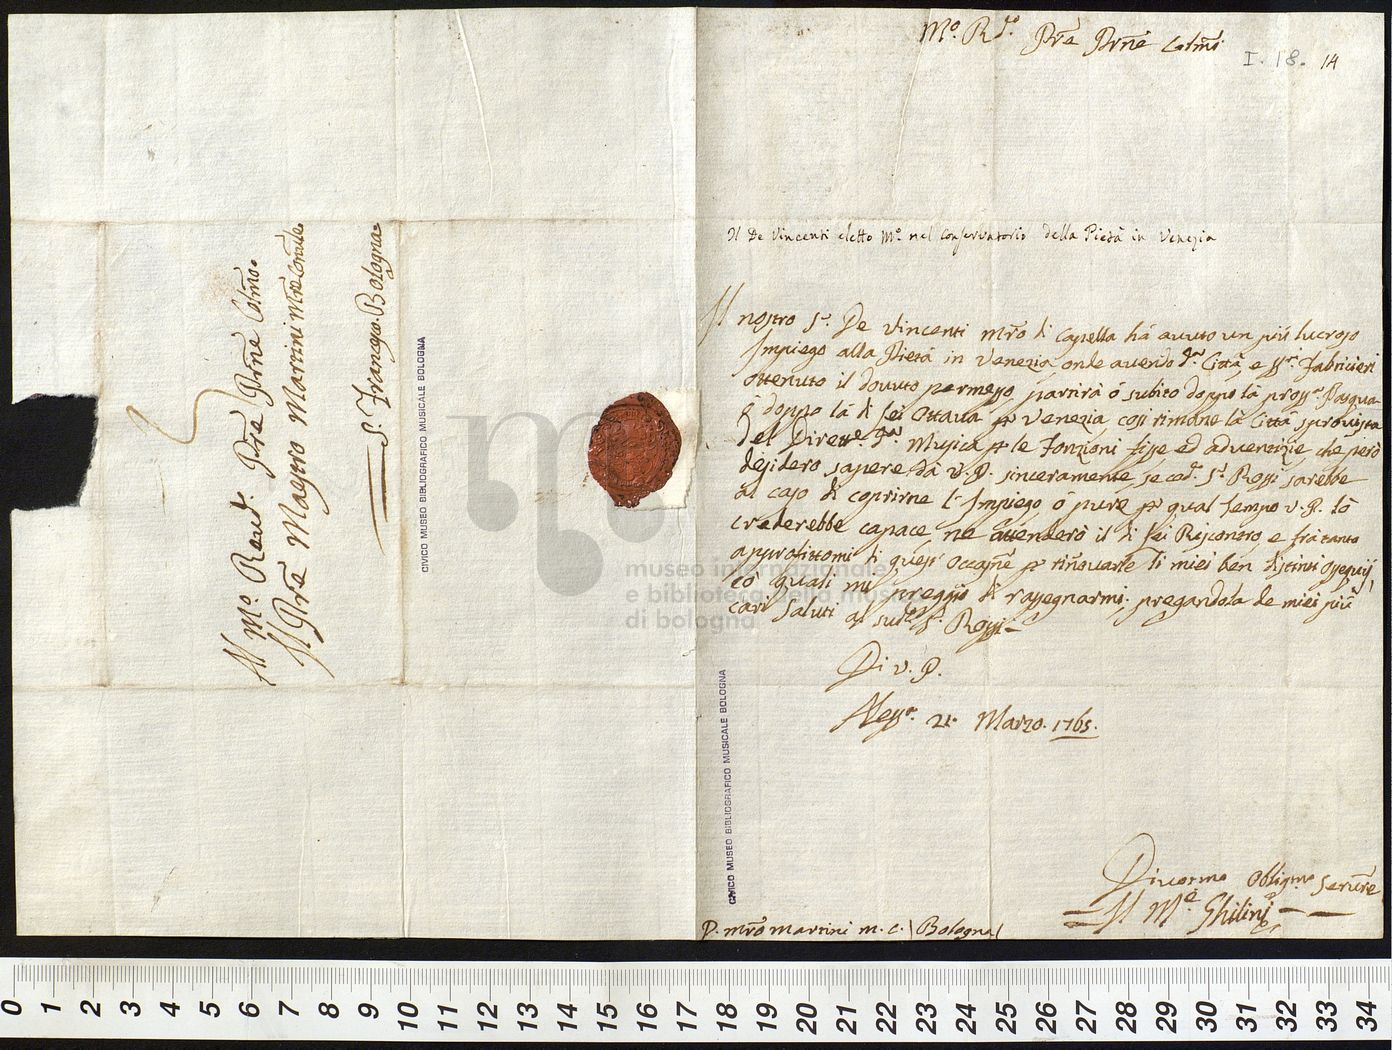 Al Mo. Revd. Prē Prñe Colmo.
Il Prē Maestro Martini Mro Conule
S. Francesco. Bologna
CIVICO MUSEO BIBLIOGRAFICO MUSICALE BOLOGNA
museo internazionale
e biblioteca della musica
di bologna
Mo. Rdo. Prē Prñe Colmo
I. 18. 14
Il De Vincenti eletto Mo. nel Conservatorio della Pietà in Venezia
Il nostro Sr. De Vincenti Mro di Capella há avuto un più lucroso
Impiego alla Pietà in Venezia onde avendo Città, e Fabricieri
ottenuto il dovuto permesso, partirà ó subito doppo lá pross. Pasqua
ó doppo lá di lei Ottava Venezia così rimane lá Città sprovvista
del Dirette. Musica le Fonzioni fisse ed advenizie che però
desidero sapere dá V. P. sinceramente se cod. Sr. Rossi sarebbe
al caso di coprirne l'Impiego, ó pure qual tempo V. P. lo
crederebbe capace, ne attenderò il di lei Riscontro, e frà tanto
approfittomi di quest occasne rinovarle li miei ben distinti ossequij
có quali mi preggio di rassegnarmi. pregandola de miei più
cari Saluti al sudo. Sr. Rossi
Di V. P.
Aless. 21. Marzo. 1765.
Divotmo Obligmo Servre
Il Me Ghilini
P. Mro Martini M. C. (Bologna)
CIVICO MUSEO BIBLIOGRAFICO MUSICALE BOLOGNA
0 1 2 3 4 5 6 7 8 9 10 11 12 13 14 15 16 17 18 19 20 21 22 23 24 25 26 27 28 29 30 31 32 33 34